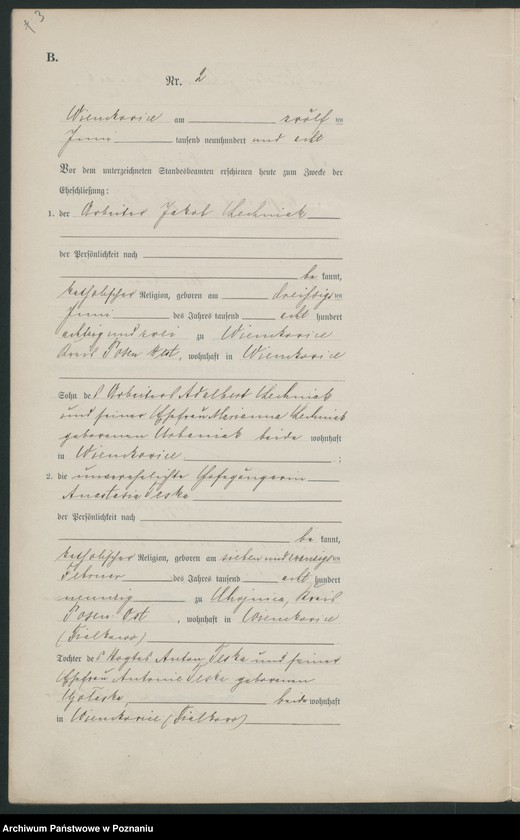 + 3
B.
Nr. 2
Wienckowice am zwölf ten
Juni tausend neunhundert und acht
Vor dem unterzeichneten Standesbeamten erschienen heute zum Zwecke der
Eheschließung:
1. der Arbeiter Jakob Lechniak
der Persönlichkeit nach
be kannt,
katholischer Religion, geboren am dreißigs ten
Juni des Jahres tausend acht hundert
achtzig und zwei zu Wienckowice
Kreis Posen West, wohnhaft in Wienckowice
Sohn des Arbeiters Adalbert Lechniak
und seiner Ehefrau Marianna Lechniak
geborenen Urbaniak beide wohnhaft
in Wienckowice ;
2. die unverehelichte Hofegängerin
Anastasia Teska
der Persönlichkeit nach
be kannt,
katholischer Religion, geboren am sieben und zwanzigs ten
Februar des Jahres tausend acht hundert
neunzig zu Chojnica, Kreis
Posen Ost, wohnhaft in Wienckowice
(Fialkowo)
Tochter des Vogtes Anton Teska und seiner
Ehefrau Antonie Teska geborenen
beide wohnhaft
in Wienckowice (Fialkowo)
Archiwum Państwowe w Poznaniu